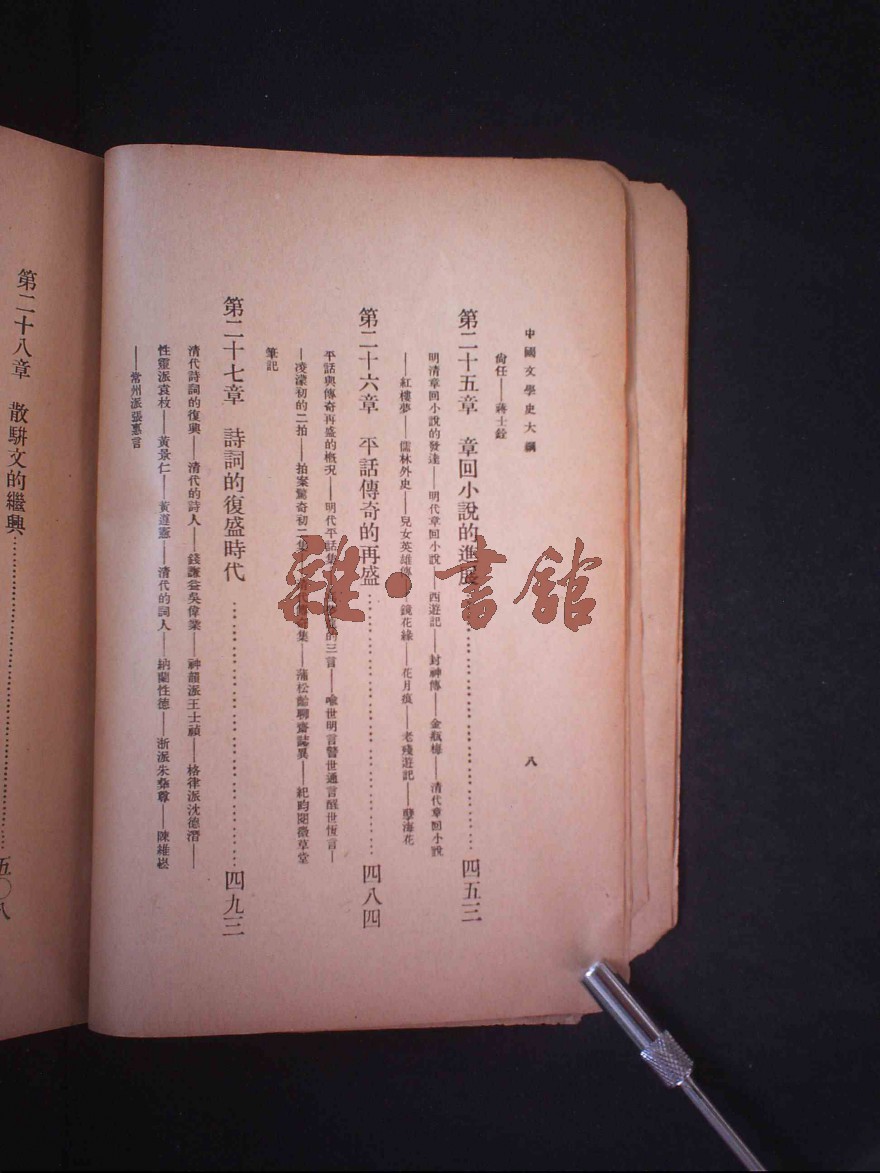 中國文學史大綱
八
尙任——蔣士銓
第二十五章　章回小說的進展……四五三
明清章回小說的發達——明代章回小說——西遊記——封神傳——金瓶梅——清代章回小說
——紅樓夢——儒林外史——兒女英雄傳——鏡花緣——花月痕——老殘遊記——孽海花
第二十六章　平話傳奇的再盛……四八四
平話與傳奇再盛的概況——明代平話集 的三言——喻世明言警世通言醒世恆言—
—凌濛初的二拍——拍案驚奇初二集 集——蒲松齡聊齋誌異——紀昀閱微草堂
筆記
第二十七章　詩詞的復盛時代……四九三
清代詩詞的復興——清代的詩人——錢謙益吳偉業——神韻派王士禎——格律派沈德潛——
性靈派袁枚——黃景仁——黃遵憲——清代的詞人——納蘭性德——浙派朱彝尊——陳維崧
——常州派張惠言
第二十八章　散駢文的繼興……五〇八
雜·書館